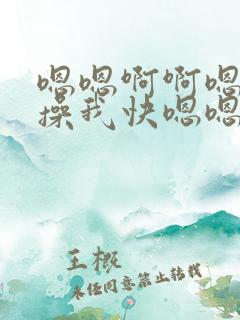 嗯嗯啊啊嗯
操我快嗯嗯
王概
未经同意禁止转载